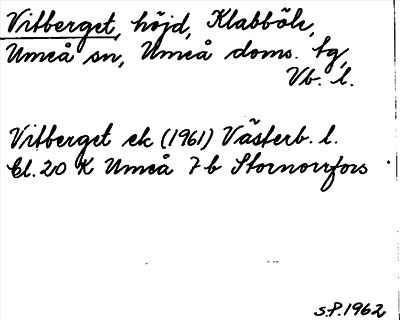 Vitberget, höjd, Klabböle,
Umeå sn, Umeå doms. tg,
Vb. l.
Vitberget ek (1961) Västerb. l.
Bl. 20 K Umeå 7 b Stornorrfors
S.P. 1962